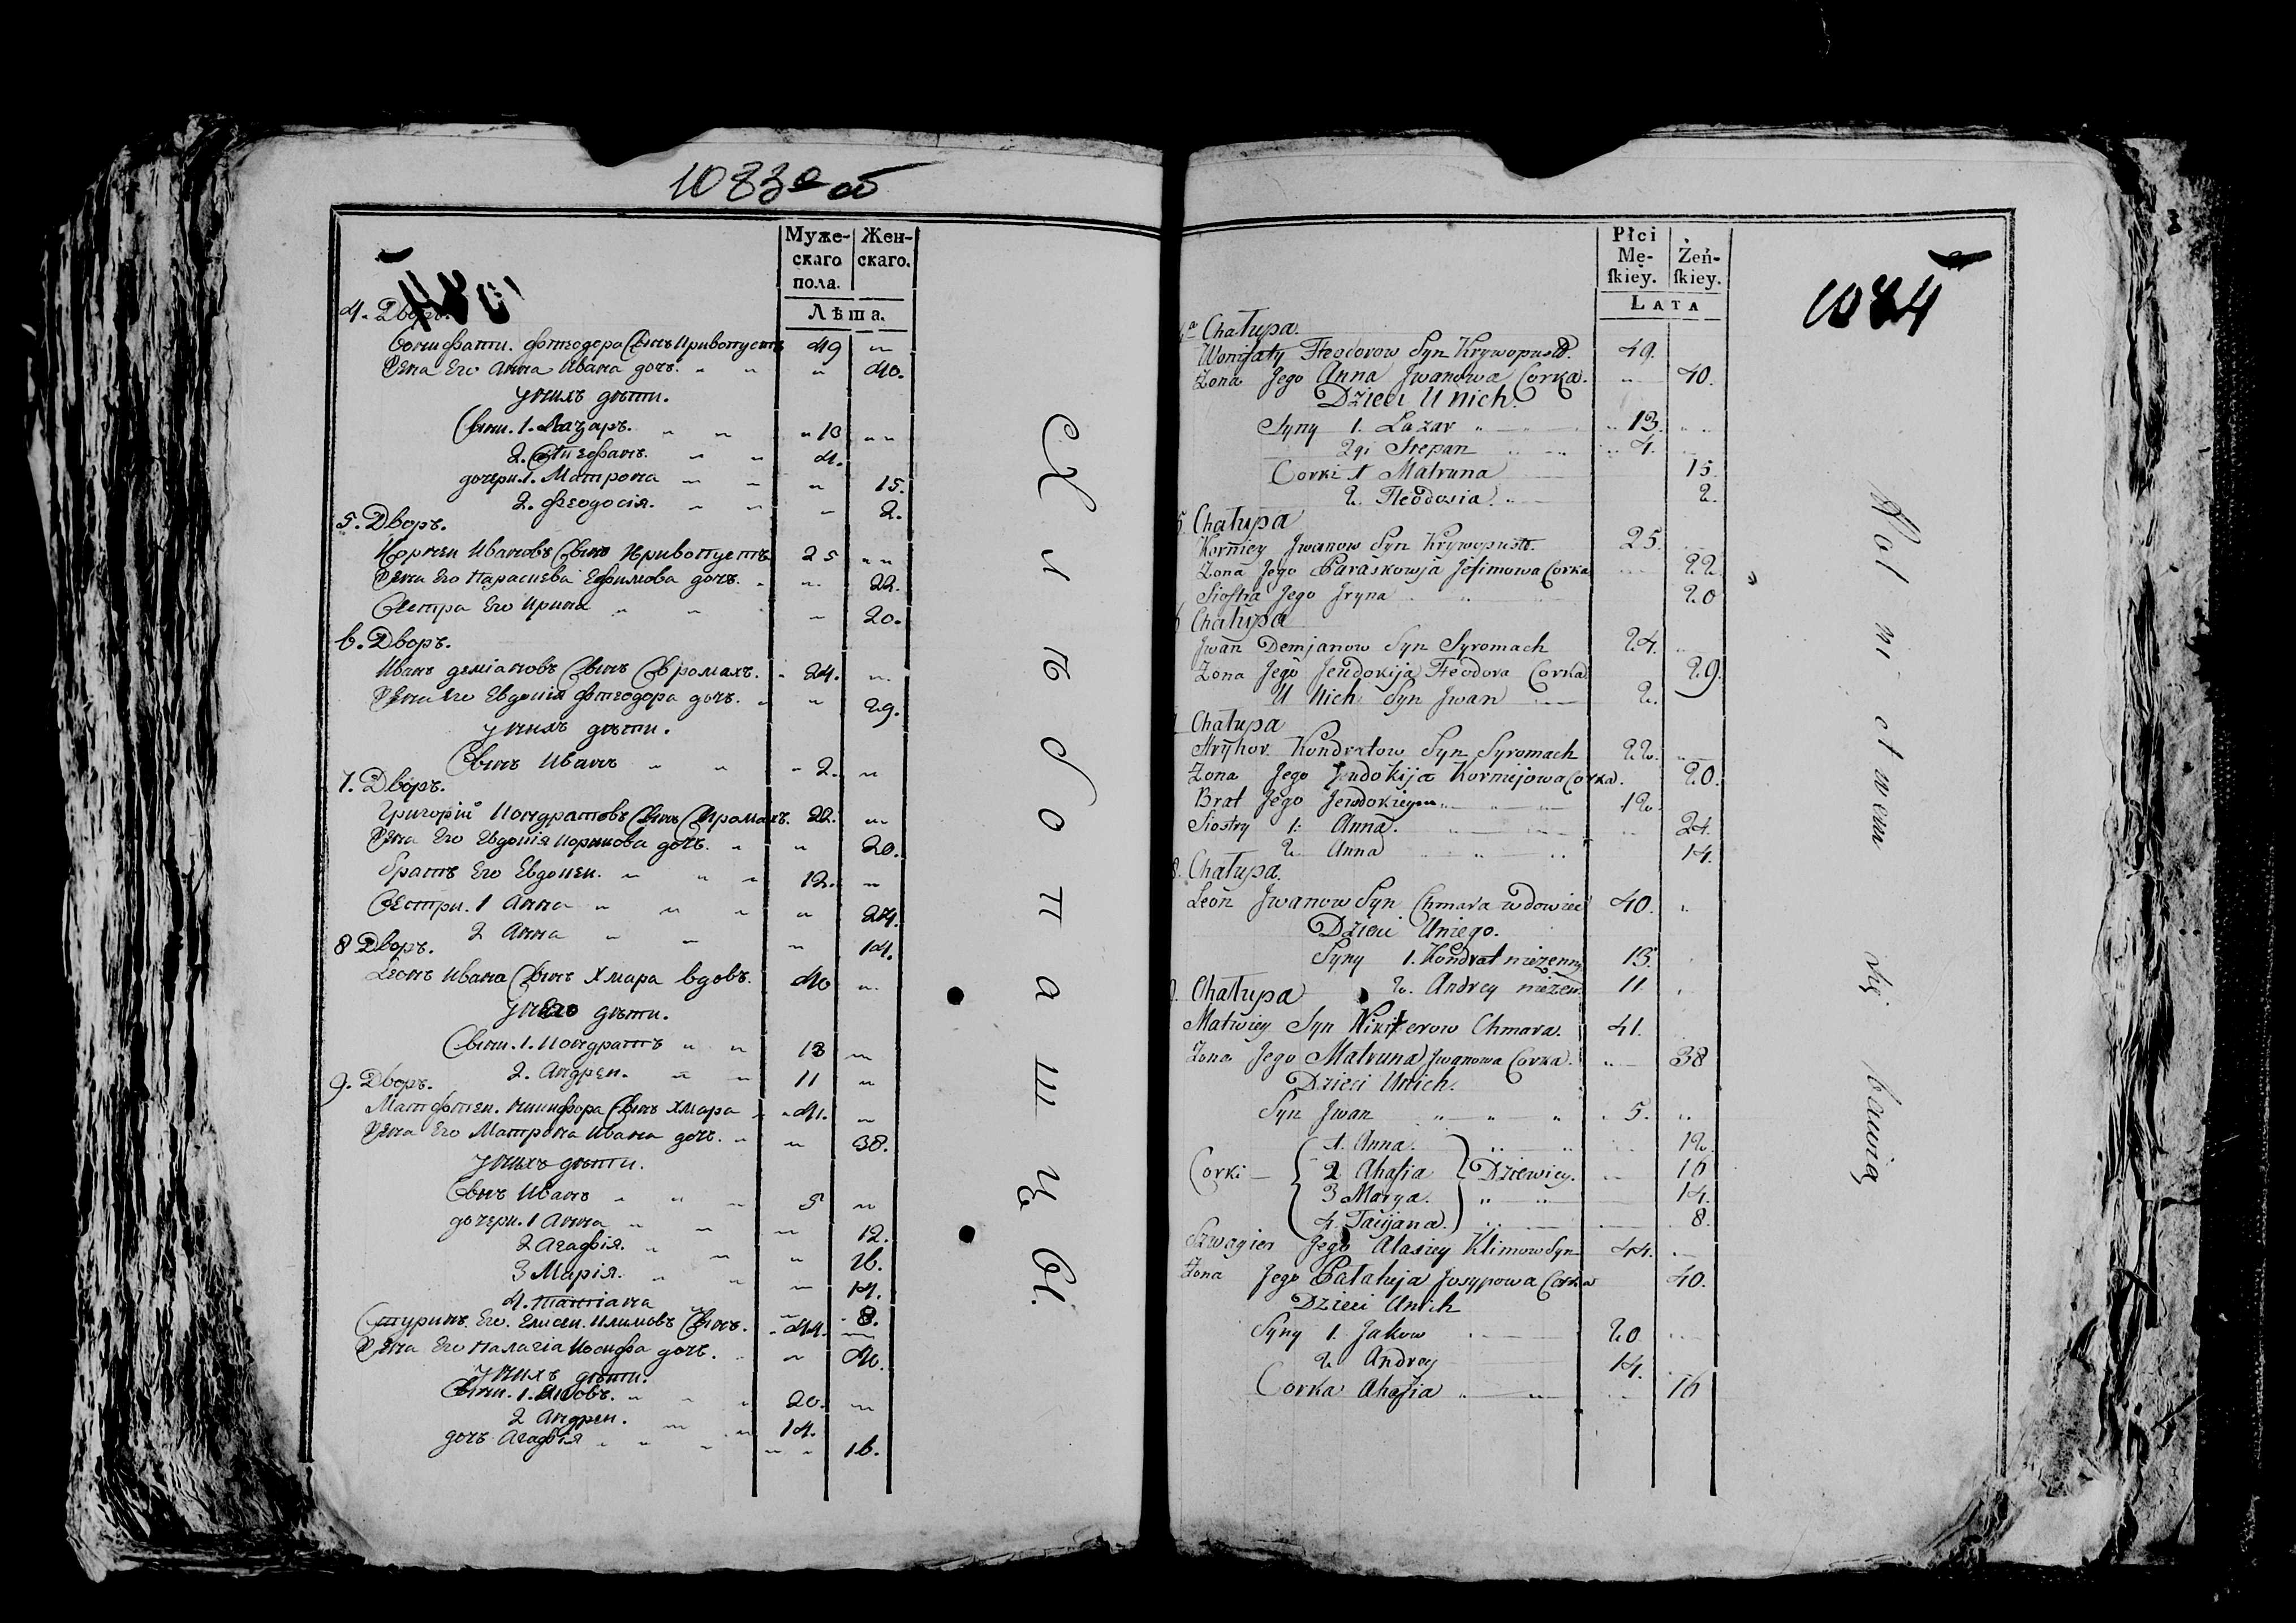 1083 об
Муже-
скаго
пола.
Жен-
скаго.
Лѣта.
4. Дворъ.
Вонифати. Фтеодора Сынъ Кривопустъ 49 "
Жена Его Анна Ивана дочь. " " " 40.
у нихъ дѣти.
Сыни. 1. Лазаръ. " " " 13 " "
2. Стефанъ. " " 4.
дочери. 1. Матрона " " " 15.
2. Феодосія. " " " 2.
5. Дворъ.
Корней Ивановъ Сынъ Кривопустъ 25 " "
Жена Его Параскева Ефимова дочь. " " 22.
Сестра Его Ирина " " " 20.
6. Дворъ.
Иванъ деміановъ Сынъ Сыромахъ. " 24. "
Жена Его Евдокія Фтеодора дочь. " " 29.
у нихъ дѣти.
Сынъ Иванъ " " " 2. "
7. Дворъ.
Григорій Кондратовъ Сынъ Сиромахъ. 22. "
Жена Его Евдокія Корнеова дочь. " " 20.
братъ Его Евдокеи. " " " 12. "
Сестри. 1 Анна " " " " 24.
2 Анна " " " 14.
8 Дворъ.
Леонъ Ивана Сынъ Хмара вдовъ. 40 "
у него дѣти.
Сыни. 1. Кондратъ " " 13 "
2. Андреи. " " 11 "
9. Дворъ.
Матфтеи. Никифора Сынъ Хмара " " 41. "
Жена Его Матрона Ивана дочь. " " 38.
у нихъ дѣти.
Сынъ Иванъ " " " 5 "
дочери. 1 Анна " " " 12.
2 Агафія. " " " 16.
3 Марія. " " " 14.
4. татіана " 8.
Стуринъ. Его. Елисеи. Климовъ Сынъ. " 44. "
Жена Его Палагія Иосифа дочь. " " 40.
у нихъ дѣти.
Сыни. 1. Яковъ. " " " 20. "
2 Андреи. " " 14.
дочь Агафія " " " " " 16.
Хлѣбопашцы.
1084
Płci
Mę-
skiey.
Żeń-
skiey.
LATA
4a Chałupa.
Wonifaty Fteodorow Syn Krywopust. 49.
Zona Jego Anna Jwanowa Corka. " 40.
Dzieci U nich.
Syny 1. Lazar " " 13. " "
2gi Stepan " " " 4.
Corki 1 Matruna 15.
2. Fteodosia. " 2.
5. Chałupa
Korniey Jwanow Syn Krywopust. 25.
Zona Jego Paraskowja Jefimowa Corka 22.
Siostra Jego Jryna " " 20
6 Chałupa
Jwan Demjanow Syn Syromach 24. "
Zona Jego Jewdokija Fteodora Corka 29.
U Nich Syn Jwan 2.
7 Chałupa
Hryhor. Kondratow Syn Syromach 22. "
Zona Jego Jewdokija Korniejowa Corka. 20.
Brat Jego Jewdokiey " " " 12.
Siostry 1: Anna. " " 24.
2. Anna " " 14.
8. Chałupa.
Leon Jwanow Syn Chmara wdowiec 40. "
Dzieci Uniego.
Syny 1. Kondrat nieżenny 13. "
2. Andrey nieżen. 11. "
9. Chałupa
Matwiey Syn Nikiferow Chmara. 41.
Zona Jego Matruna Jwanowa Corka. " 38
Dzieci Unich.
Syn Jwan " " " " 5. "
1. Anna. " " 12.
Corki 2 Ahafia Dziewicy. " 16
3 Marya. " " 14.
4. Tacijana. " 8.
Szwagier Jego Alasiey Klimow Syn 44. "
Zona Jego Pałahija Josypowa Corka 40.
Dzieci Unich
Syny 1. Jakow " 20. "
2. Andrey 14.
Corka Ahafia " " " 16
Rolnictwem się bawią